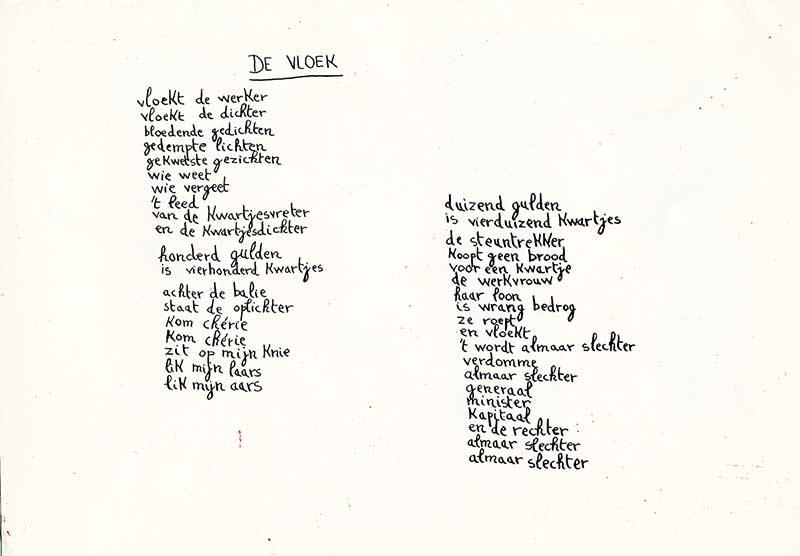 DE VLOEK
vloekt de werker
vloekt de dichter
bloedende gedichten
gedempte lichten
gekwetste gezichten
wie weet
wie vergeet
't leed
van de Kwartjesvreter
en de Kwartjesdichter
honderd gulden
is vierhonderd Kwartjes
achter de balie
staat de oplichter
Kom chérie
Kom chérie
zit op mijn Knie
lik mijn laars
lik mijn aars
duizend gulden
is vierduizend Kwartjes
de steuntrekker
Koopt geen brood
voor een Kwartje
de werkvrouw
haar loon
is wrang bedrog
ze roept
en vloekt
't wordt almaar slechter
verdomme
almaar slechter
generaal
minister
Kapitaal
en de rechter
almaar slechter
almaar slechter